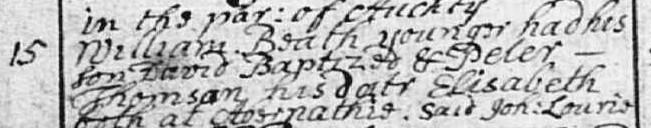 in the par: of Auchty
15 William Beath younger had his
son David Baptized & Peter —
Thomson his datr Elisabeth
both at Abernathie. said Joh: Lourie